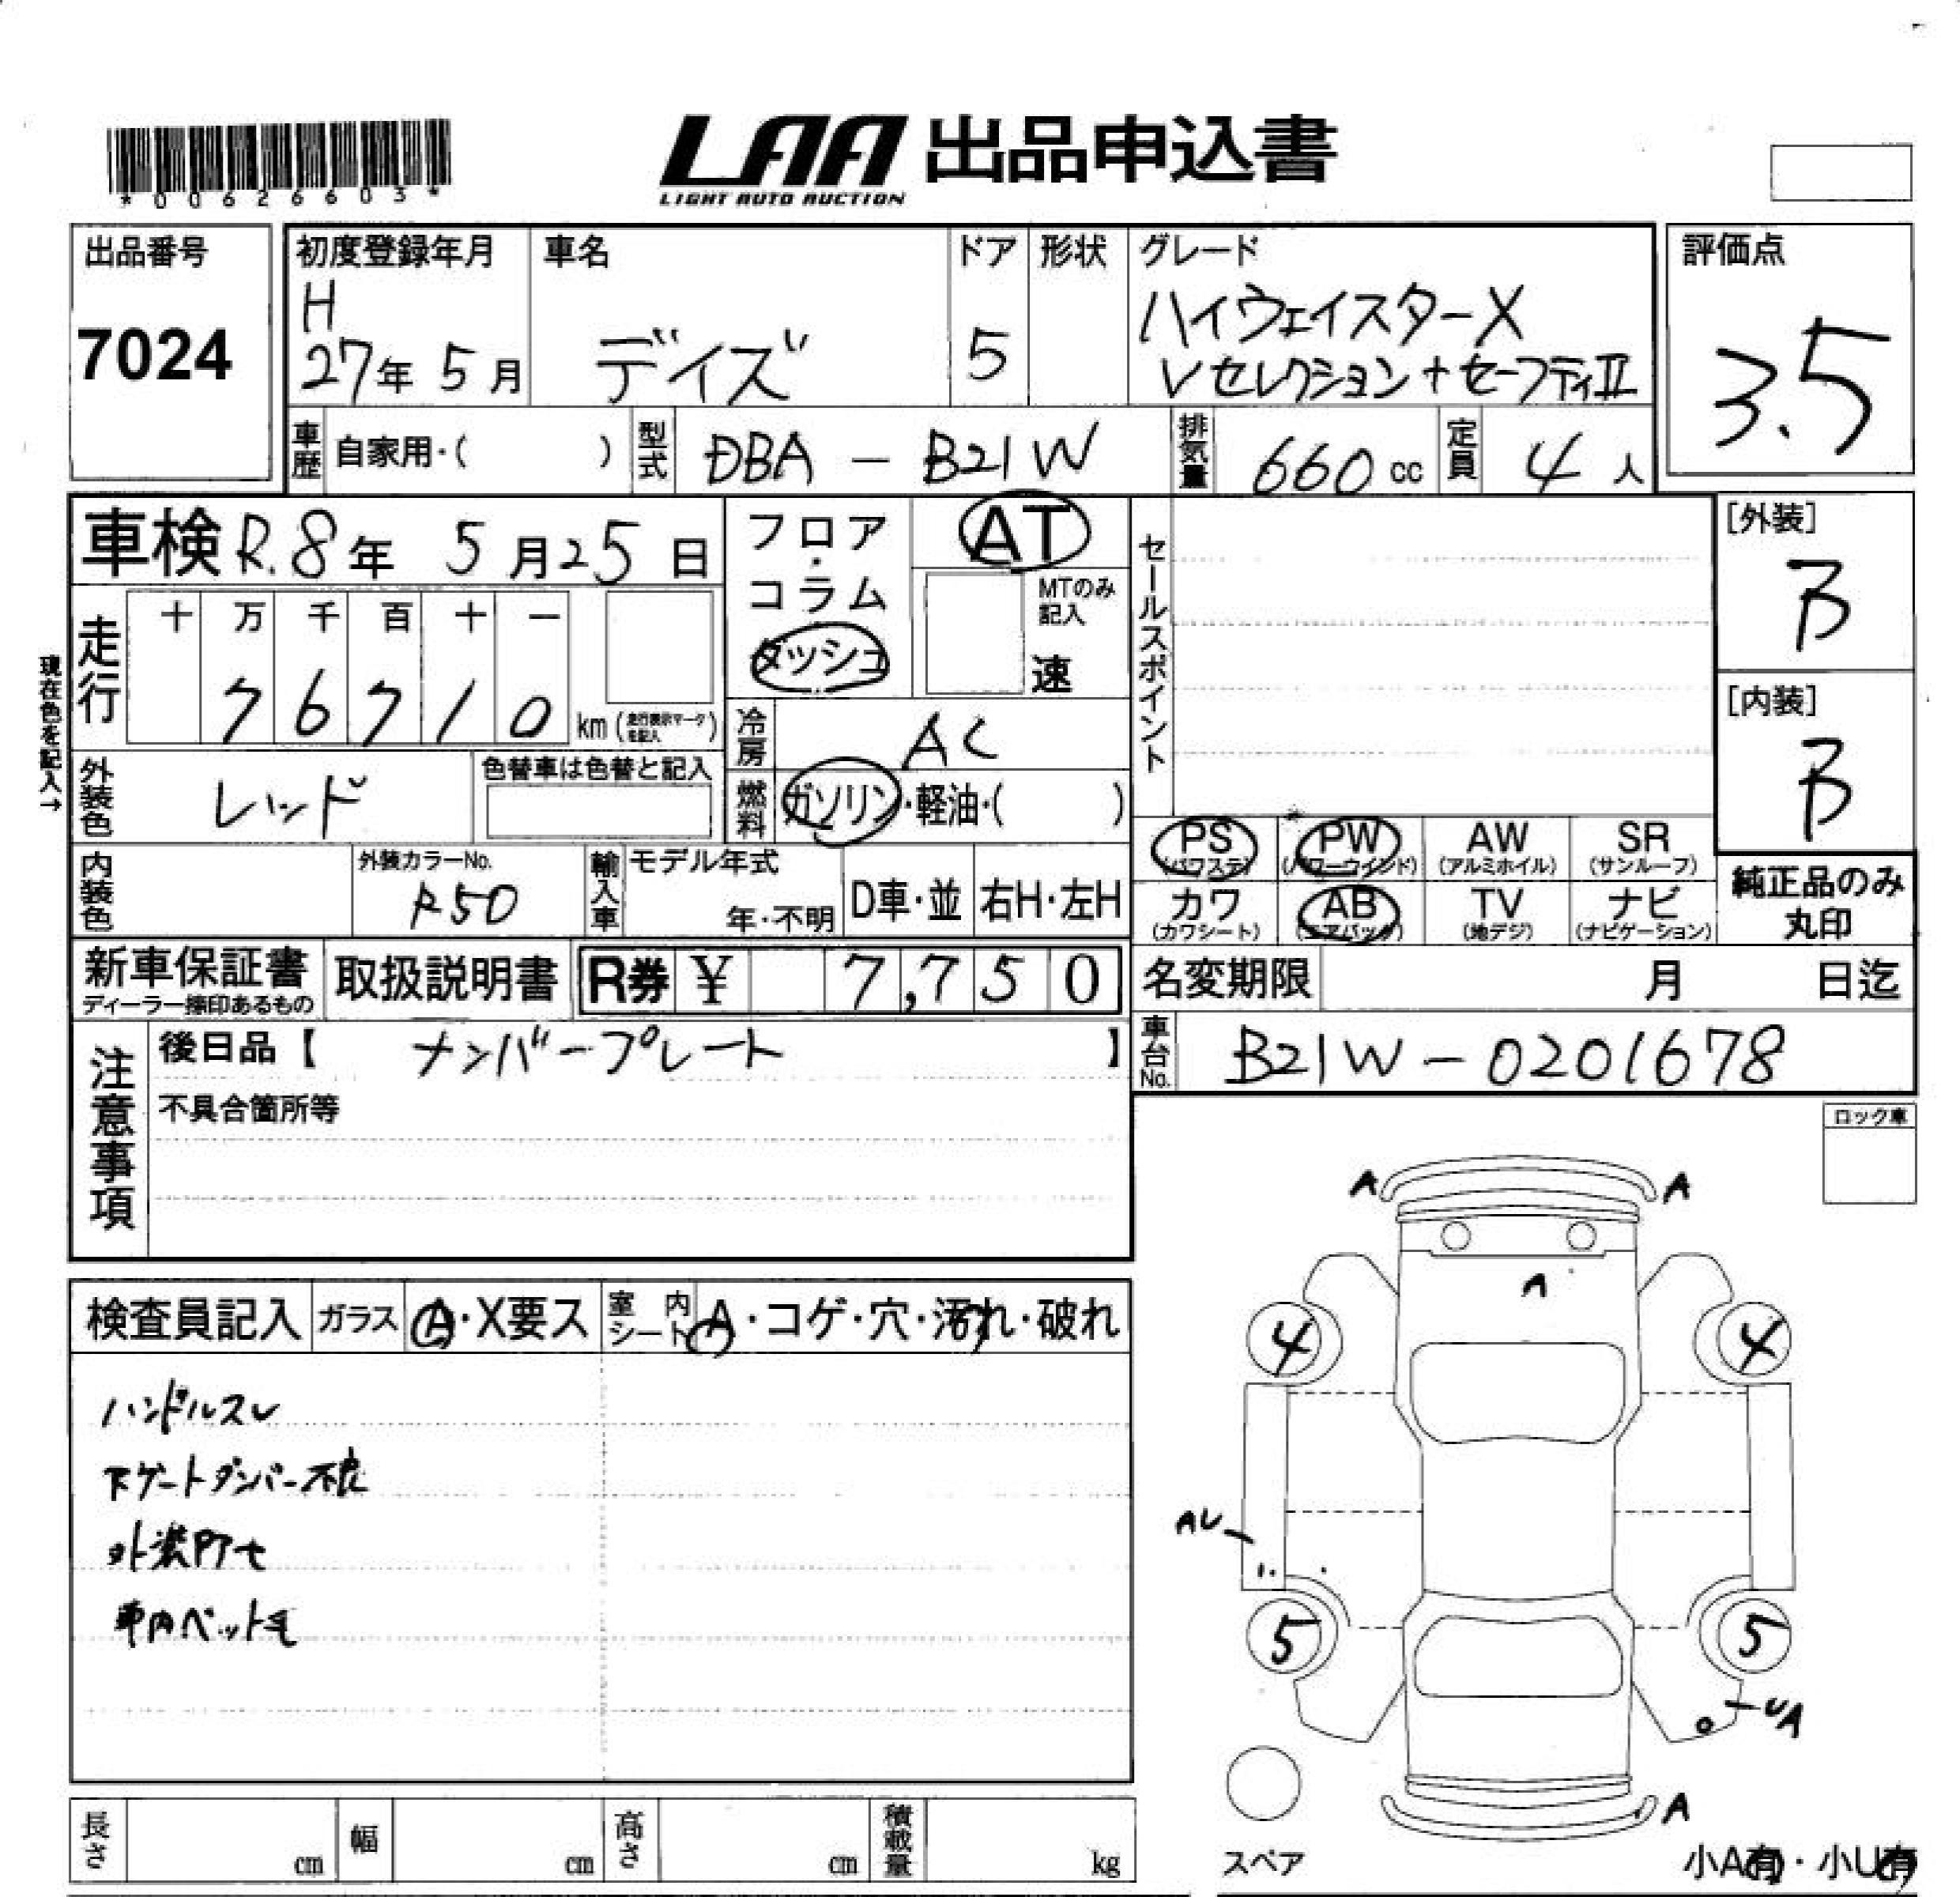 *00626603*
LAA 出品申込書
LIGHT AUTO AUCTION
出品番号
7024
初度登録年月
H
27年 5月
車名
デイズ
ドア
5
形状
グレード
ハイウェイスターX
Vセレクション+セーフティⅡ
評価点
3.5
車歴 自家用・( )
型式 DBA - B21W
排気量 660 cc
定員 4 人
車検 R.8年 5月25日
フロア・コラム
ダッシュ
AT
MTのみ記入
速
セールスポイント
[外装]
B
[内装]
B
現在色を記入→
走行
十 万 千 百 十 一
7 6 7 1 0 km (走行表示マークを記入)
冷房 AC
外装色 レッド
色替車は色替と記入
燃料 ガソリン・軽油・( )
PS (パワステ) PW (パワーウインド) AW (アルミホイル) SR (サンルーフ)
カワ (カワシート) AB (エアバック) TV (地デジ) ナビ (ナビゲーション)
純正品のみ
丸印
内装色
外装カラーNo.
R50
輸入車 モデル年式
年・不明
D車・並 右H・左H
新車保証書
ディーラー捺印あるもの
取扱説明書
R券 ¥ 7,750
名変期限 月 日迄
注意事項
後日品【 ナンバープレート 】
不具合箇所等
車台No. B21W-0201678
ロック車
検査員記入 ガラス A・X要ス 室内シート A・コゲ・穴・汚れ・破れ
ハンドルスレ
下ゲートダンパー不良
外装PTセ
車内ペット毛
A A
A
4 4
AU
5 5
UA
A
スペア
小A有・小U有
長さ cm 幅 cm 高さ cm 積載量 kg